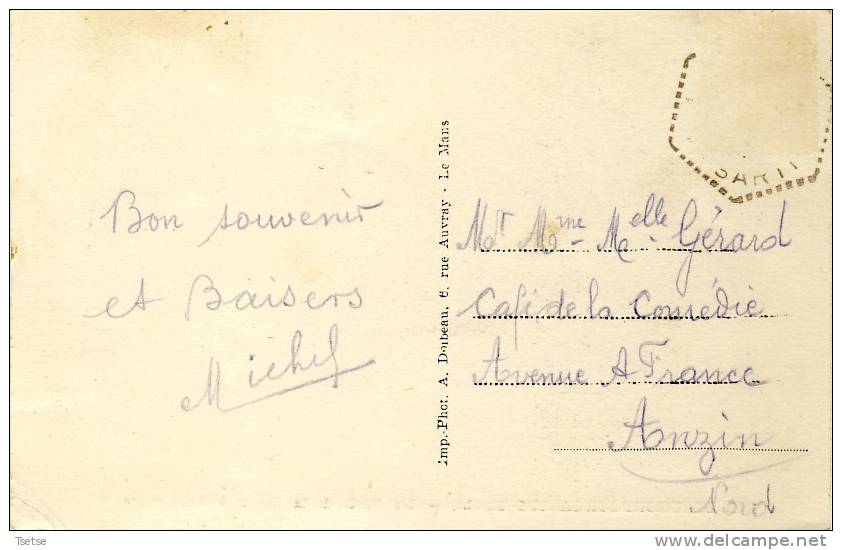 Bon souvenir
et Baisers
Michel
Imp.-Phot. A. Dolbeau, 6, rue Auvray - Le Mans
SART
Mr Mme Melle Gérard
Café de la Comédie
Avenue A France
Anzin
Nord
Tsetse
www.delcampe.net